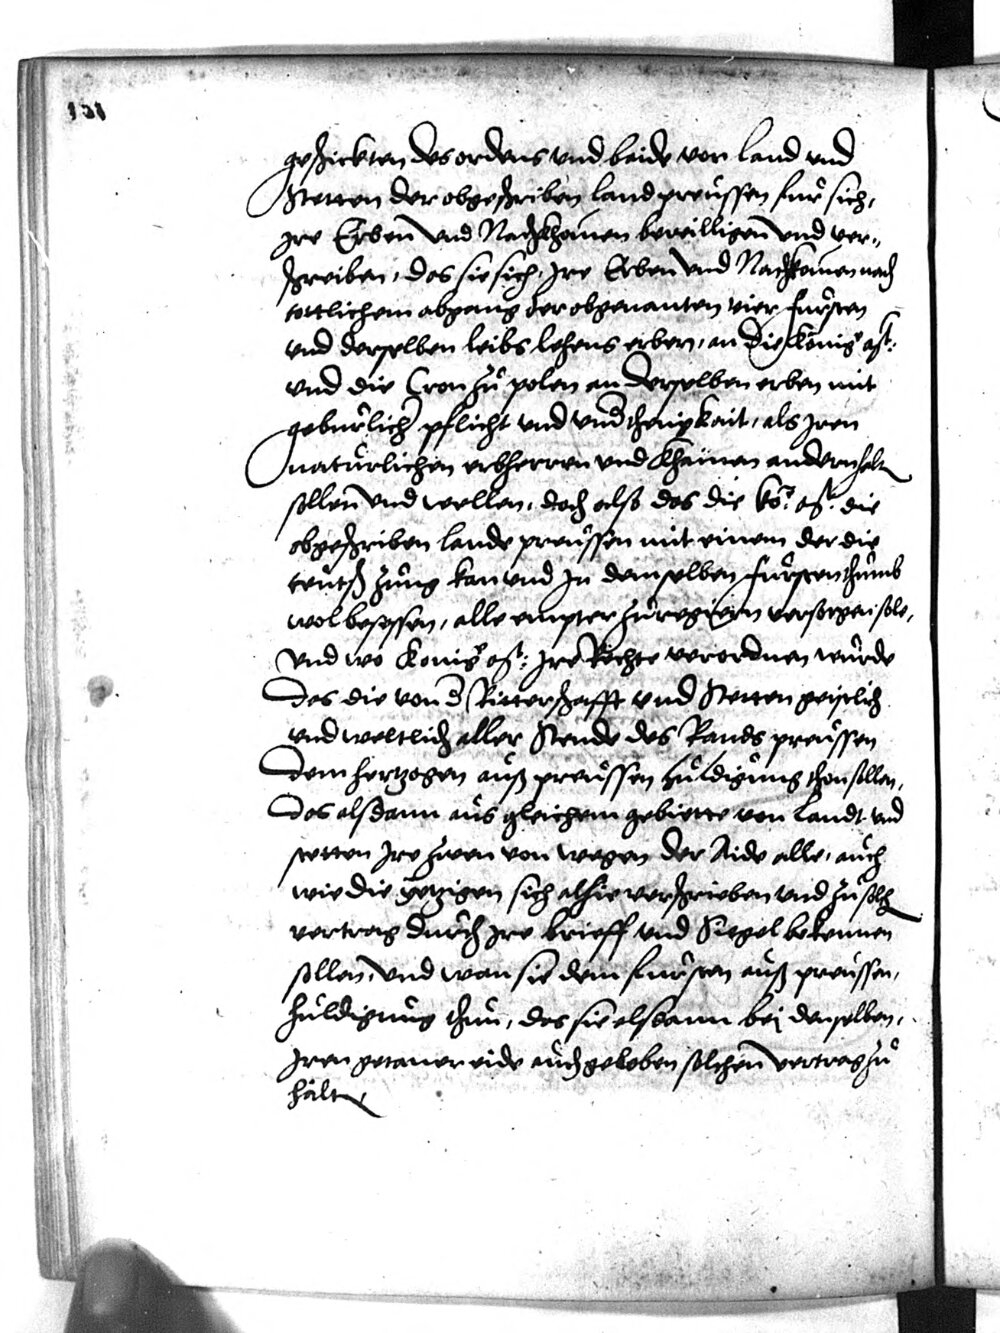 151
geschickten des ordens und beide von land und
Stetten der obgeschriben land preussen fur sich,
Ire Erben und Nachkhomen bewilligen und ver-
schreiben, das sie sich, Ire Erben und Nachkomen nach
tottlichem abgang der obgenanten vier fursten
und derselben leibs lehens erben, an die Konig mt:
und die Cron zu polen an derselben erben mit
geburlicher pflicht und underthenigkait, als Iren
naturlichen erbherren und khainen andern halten
sollen und wellen, doch also das die ko: mt: die
obgeschriben lande preussen mit einem der die
teutsch zung kan und In demselben furstenthumb
wol besessen, alle empter zuregieren versorgen sole,
und wo Konig mt: Ire Rechte verordnen wurde
das die von der Ritterschafft und Stetten geistlich
und weltlich aller Stende des Lands preussen
dem hertzogen auss preussen huldigung thon sollen,
das alsdann aus gleichem gebiette von Landt und
stetten Ire zwen von wegen der Aide alle, auch
wie die yetzigen sich alhie verschrieben und zu solchem
vertrag durch Ire brieff und Sigel bekennen
sollen, und wan sie dem fursten auss preussen,
huldigung thun, das sie alsdann bei denselben,
Iren getanen eide auch geloben solchen vertrag zu
halten,